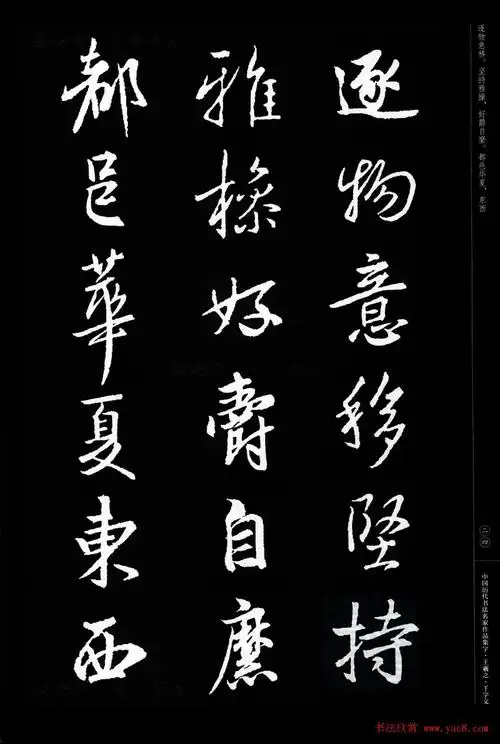 逐物意移堅持
雅操好爵自縻
都邑華夏東西
逐物意移。坚持雅操，好爵自縻。都邑华夏，东西
二四
中国历代书法名家作品集字·王羲之·千字文
书法欣赏 www.yac8.com